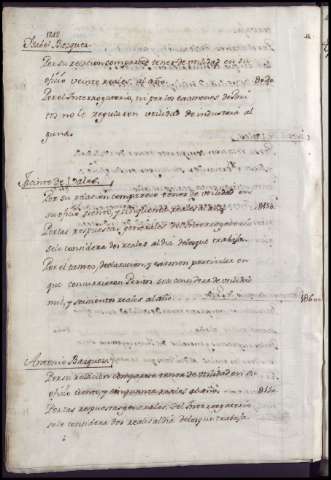 Por su relacion comparece tener de utilidad en su
oficio veinte reales, al año
Por el Interrogatorio, ni por los examenes de Peri
tos no le regulearon utilidad de industria al
guna
Jazinto de Sales
Por su relacion comparece tener de utilidad
en su oficio ciento, y reales al año
Por las respuestas generales del Interrogatorio
se le considera dos reales al dia de los que trabaja
Por el tanteo, declaracion, y examen particular en
que convinieron Peritos se le considera de utilidad
mil, y seiscientos reales al año
Antonio Bazquez
Por su relacion comparece tener de utilidad en su
oficio ciento, y cinquenta reales al año
Por las respuestas generales, del Interrogatorio
se le considera dos reales al dia de los que trabaja